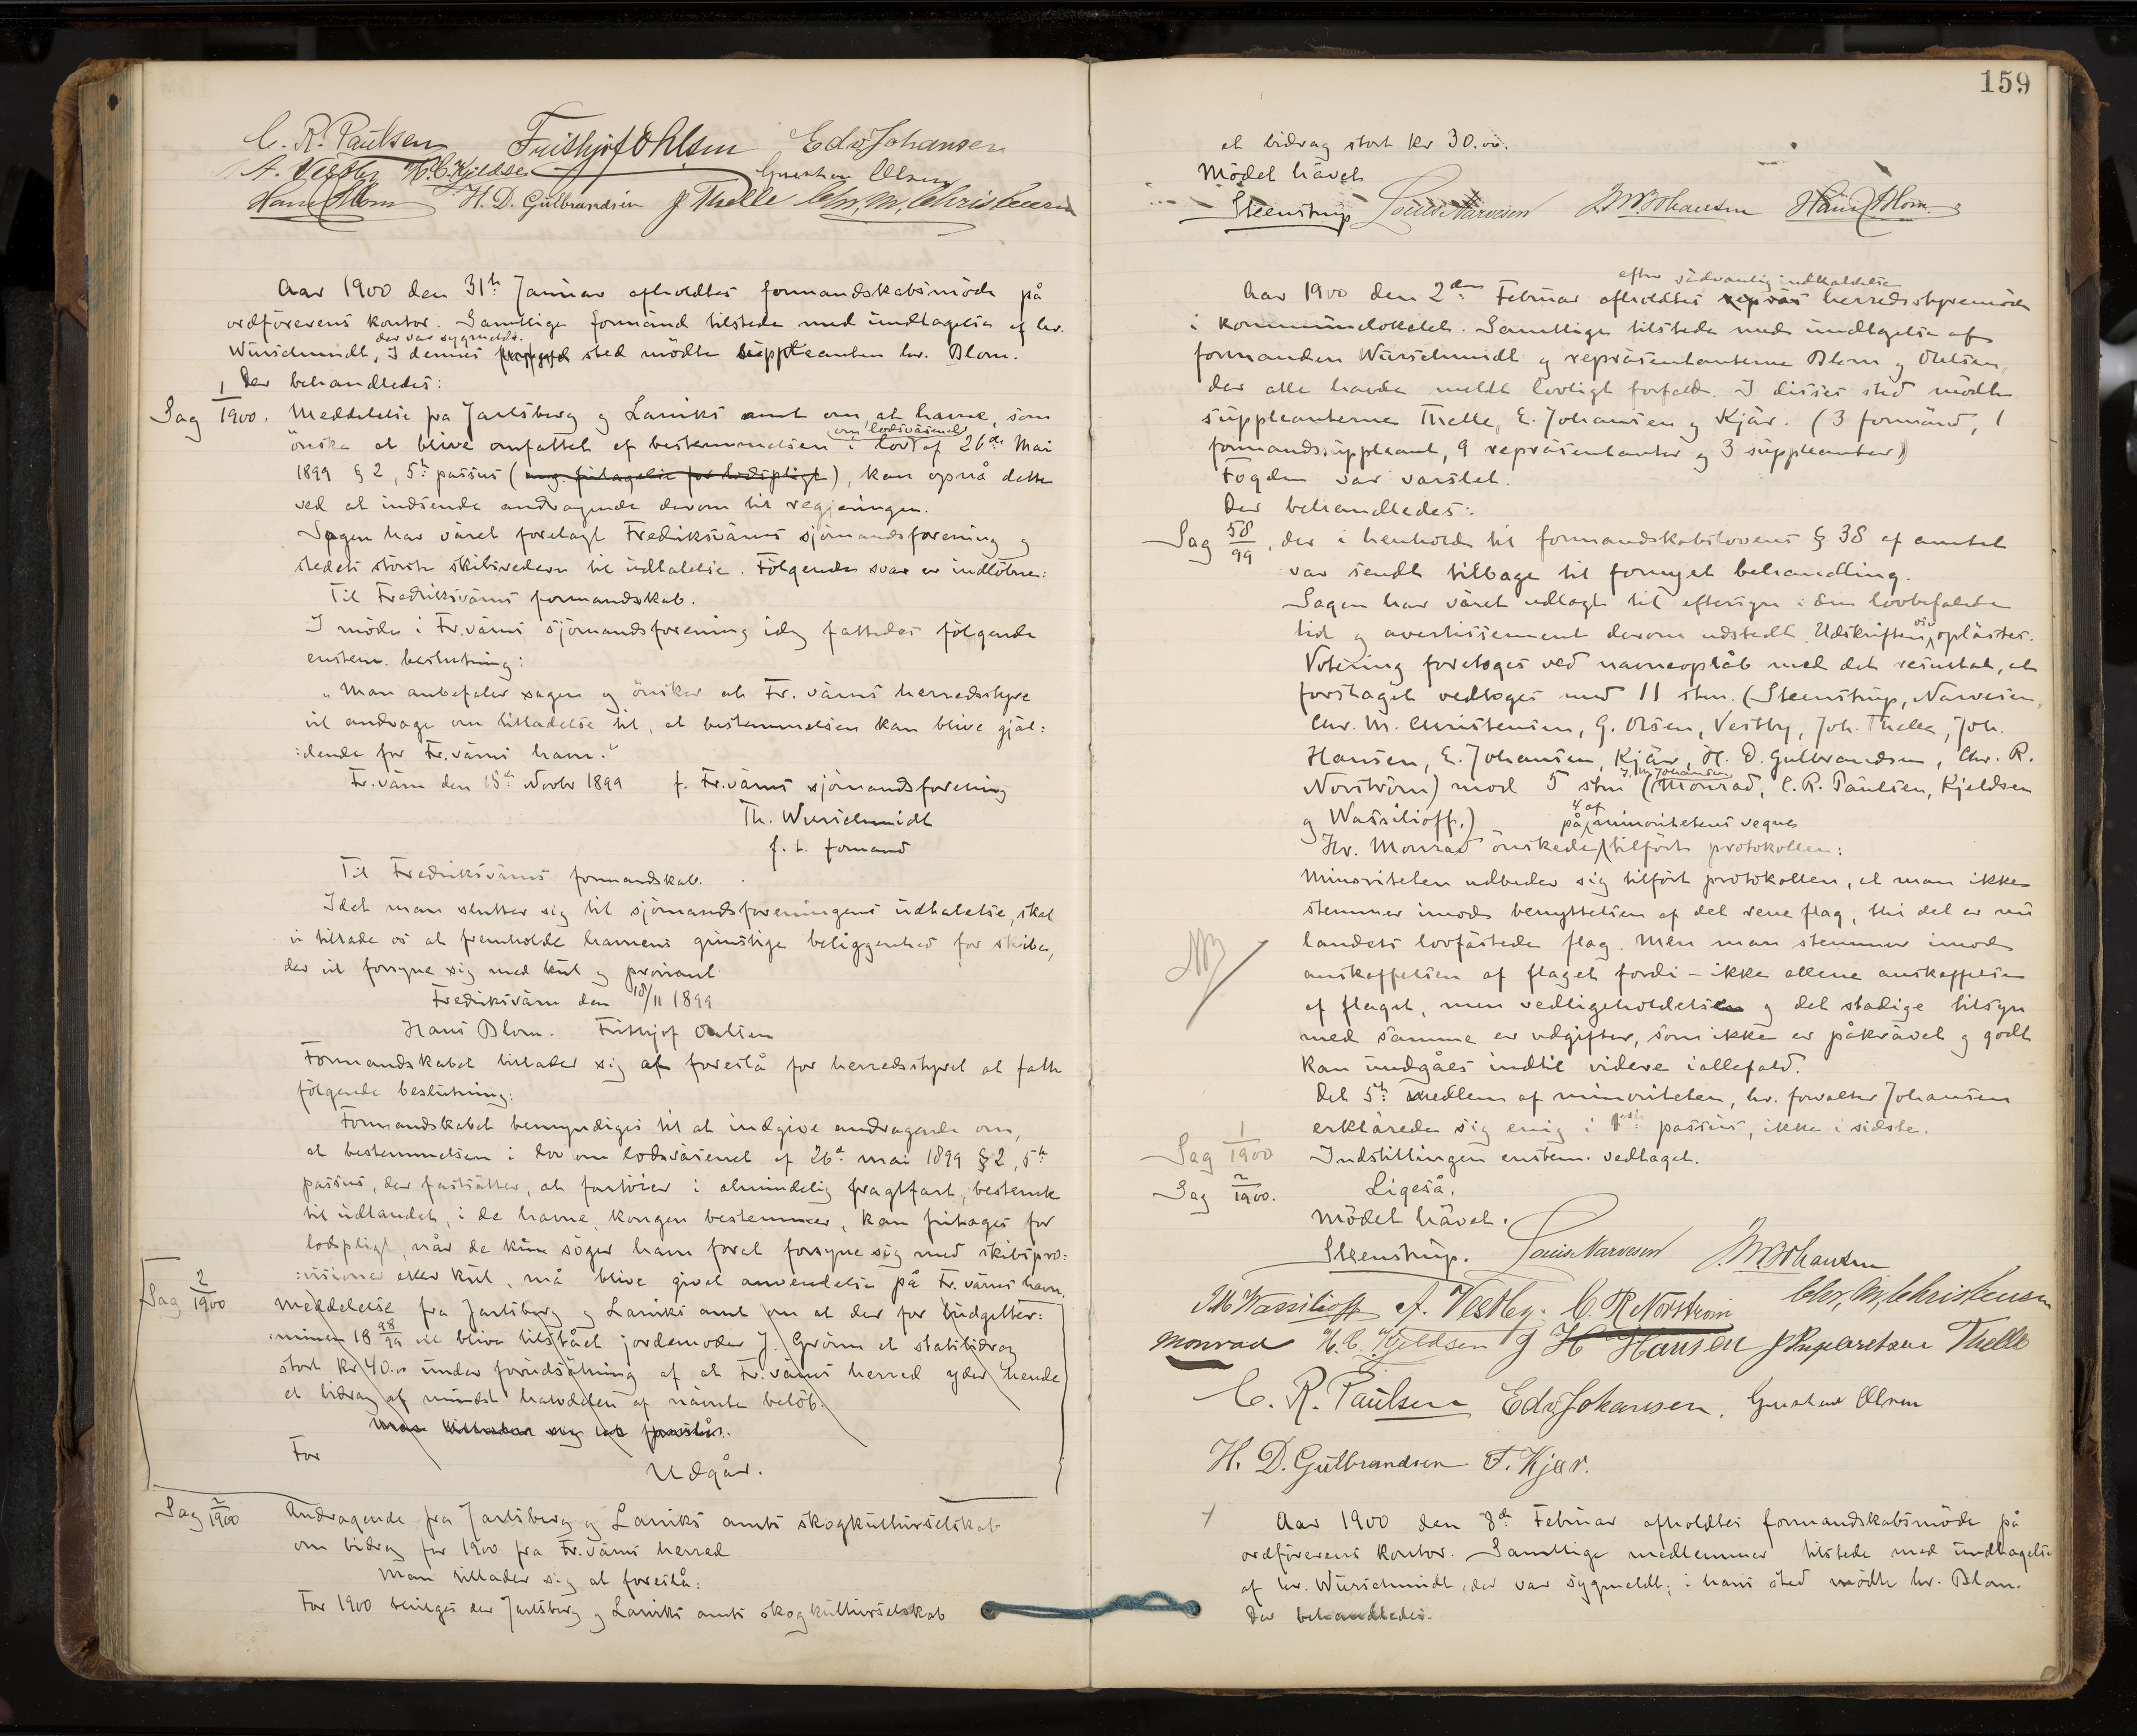 C. R. Paulsen Frithjof Ohlsen Edv. Johansen
A. Vestby H. C. Kjeldsen Gunstav Olsen
Hans Blom H. D. Gulbrandsen J Thelle Chr. M. Christensen
Aar 1900 den 31te Januar afholdtes formandskabsmöde på
ordförerens kontor. Samtlige formänd tilstede med undtagelse af hr.
der var sygmeldt.
Würschmidt, I dennes sted mödte suppleanten hr. Blom.
Der behandledes:
Sag 1/1900. Meddelelse fra Jarlsberg og Larviks amt om, at havne, som
om lodsväsenet
önske at blive omfattet af bestemmelsen i lov af 26de Mai
1899 § 2, 5te passus (ang. fritagelse for lodspligt), kan opnå dette
ved at indsende andragende derom til regjeringen.
Sagen har väret forelagt Fredriksväns sjömandsforening og
stedets störste skibsredere til udtalelse. Fölgende svar er indlöbne:
Til Fredriksväns formandskab.
I möde i Fr.väns sjömandsforening idag fattedes fölgende
enstem. beslutning:
„Man anbefaler sagen og önsker at Fr. väns herredsstyre
vil andrage om tilladelse til, at bestemmelsen kan blive gjäl=
=dende for Fr.väns havn."
Fr.värn den 15de Novbr 1899 f. Fr.väns sjömandsforening
Th. Würschmidt
f. t. formand
Til Fredriksväns formandskab.
Idet man slutter sig til sjömandsforeningens udtalelse, skal
vi tillade os at fremholde havnens gunstige beliggenhed for skibe,
der vil forsyne sig med kul og proviant
Fredriksvärn den 18/11 1899
Hans Blom. Frithjof Ohlsen
Formandskabet tillader sig at foreslå for herredsstyret at fatte
fölgende beslutning:
Formandskabet bemyndiges til at indgive andragende om,
at bestemmelsen i lov om lodsväsenet af 26de mai 1899 § 2, 5te
passus, der fastsätter, at fartöier i almindelig fragtfart, bestemte
til udlandet, i de havne, kongen bestemmer, kan fritages for
lodspligt, når de kun söger havn forat forsyne sig med skibspro=
=visioner eller kul, må blive givet anvendelse på Fr.väns havn.
Sag 2/1900 Meddelelse fra Jarlsberg og Larviks amt om at der for budgetter=
minen 1898/99 vil blive tilstået jordemoder J. Grönn et statsbidrag
stort kr 40.00 under forudsätning af at Fr.väns herred yder hende
et bidrag af mindst halvdelen af nävnte belöb.
Man tillader sig at foreslå:
For
Udgår.
Sag 2/1900 Andragende fra Jarlsberg og Larviks amts skogkulturselskab
om bidrag for 1900 fra Fr.väns herred
Man tillader sig at foreslå:
For 1900 bevilges der Jarlsberg og Larviks amts skogkulturselskab
159
et bidrag stort kr 30.00.
Mödet hävet
Steenstrup Louis Narvesen J. M. Johansen Hans Blom
efter sedvanlig indkaldelse
Aar 1900 den 2den Februar afholdtes herredsstyremöde
i kommunelokalet. Samtlige tilstede med undtagelse af
formanden Würschmidt og repräsentanterne Blom og Ohlsen,
der alle havde meldt lovligt forfald. I disses sted mödte
suppleanterne Thelle, E. Johansen og Kjär. (3 formänd, 1
formandssuppleant, 9 repräsentanter og 3 suppleanter)
Fogden var varslet.
Der behandledes:
Sag 58/99, der i henhold til formandskabslovens § 38 af amtet
var sendt tilbage til fornyet behandling.
Sagen har väret udlagt til eftersyn i den lovbefalede
tid og avertissement derom udstedt. Udskriften oplästes.
Votering foretoges ved navneopråb med det resultat, at
forslaget vedtoges med 11 stm. (Steenstrup, Narvesen,
Chr. M. Christensen, G. Olsen, Vestby, Joh. Thelle, Joh.
Hansen, E. Johansen, Kjär, H. D. Gulbrandsen, Chr. R.
J. M. Johansen
Norström) mod 5 stm (Monrad, C. R. Paulsen, Kjeldsen
og Wassilioff.)
på 4 af minoritetens vegne
Hr. Monrad önskede tilfört protokollen:
Minoriteten udbeder sig tilfört protokollen, at man ikke
stemmer imod benyttelsen af det rene flag, thi det er nu
NB
landets lovfästede flag. Men man stemmer imod
anskaffelsen af flaget fordi – ikke allene anskaffelsen
af flaget, men vedligeholdelsen og det stadige tilsyn
med samme er udgifter, som ikke er påkrävet og godt
kan undgåes indtil videre iallefald.
Det 5te medlem af minoriteten, hr. forvalter Johansen
erklärede sig enig i 1ste passus, ikke i sidste.
Sag 1/1900 Indstillingen enstem. vedtaget.
Sag 2/1900. Ligeså.
Mödet hävet.
Steenstrup. Louis Narvesen J. M. Johansen
J M Wassilioff A. Vestby. C. R Norstrøm Chr. M. Christensen
Monrad H. C. Kjeldsen J H Hansen J Thelle
C. R. Paulsen Edv Johansen. Gunstav Olsen
H. D. Gulbrandsen F. Kjær.
Aar 1900 den 8de Februar afholdtes formandskabsmöde på
ordförerens kontor. Samtlige medlemmer tilstede med undtagelse
af hr. Würschmidt, der var sygmeldt; i hans sted mödte hr. Blom.
Der behandledes.